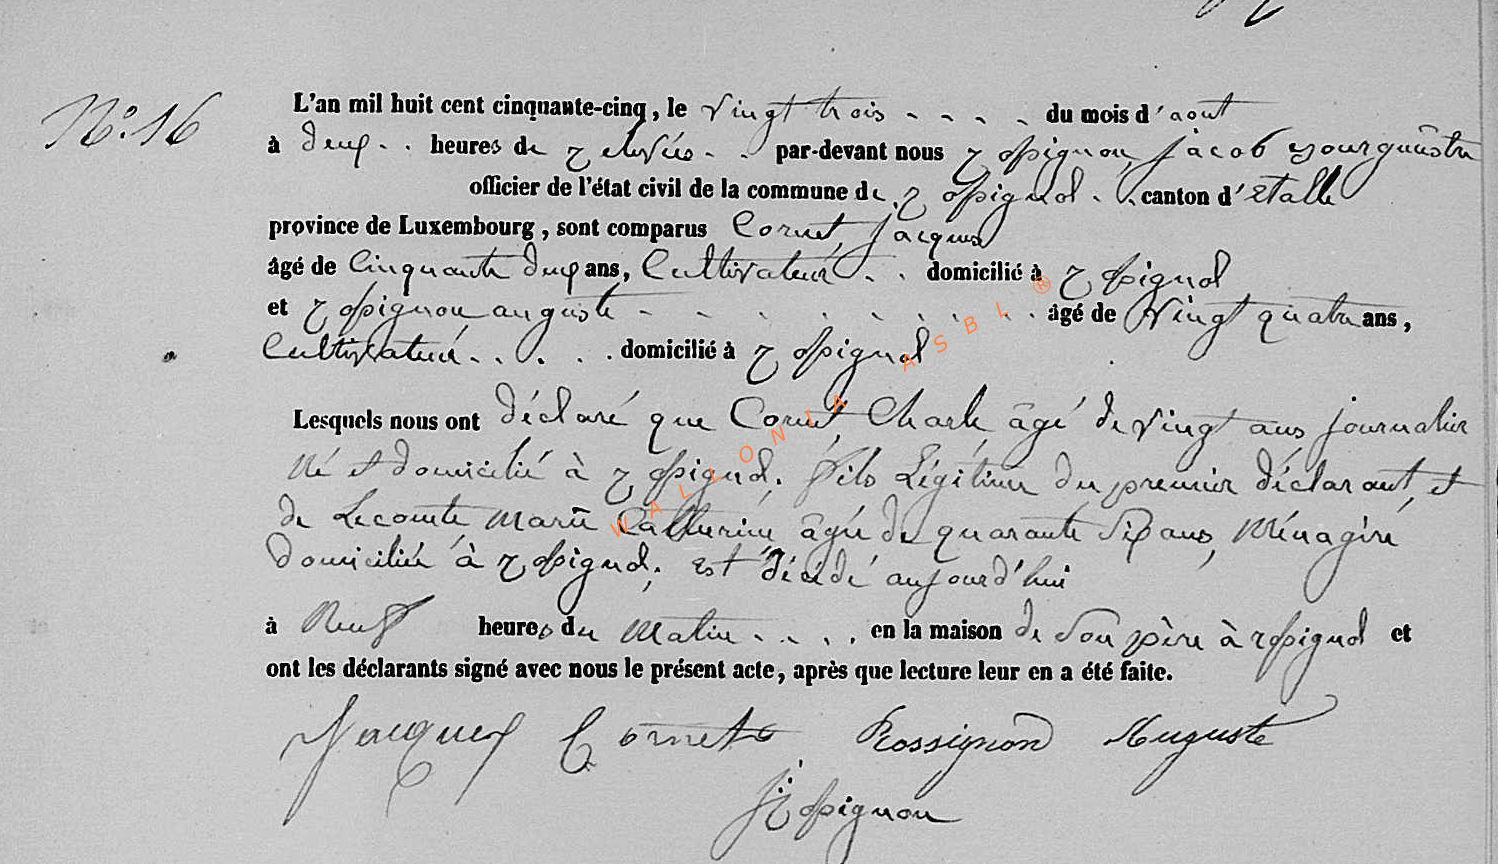 N.° 16
L'an mil huit cent cinquante-cinq, le vingt trois . . . . du mois d'aout
à deux . . heures de relevée . . par-devant nous rossignon, jacob Bourguèstre
officier de l'état civil de la commune de rossignol . . canton d'étalle
province de Luxembourg, sont comparus Cornet, jacques
âgé de Cinquante deux ans, Cultivateur . . domicilié à rossignol
et rossignon auguste . . . . . . . . âgé de vingt quatre ans,
Cultivateur . . . . . domicilié à rossignol
Lesquels nous ont déclaré que Cornet, Charle âgé de vingt ans journalier
Né et domicilié à rossignol, fils Légitime du premier déclarant, et
de Lecomte Marie Catherine âgée de quarante six ans, Ménagère
domiciliée à rossignol, est décédé aujourd'hui
à Neuf heures du matin . . . . en la maison de son père à rossignol et
ont les déclarants signé avec nous le présent acte, après que lecture leur en a été faite.
Jacques Cornet Rossignon Auguste
J: rossignon
WALLONIA ASBL ®